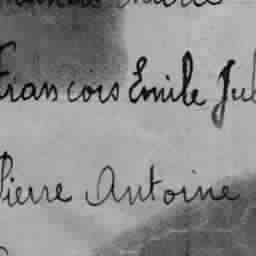 Francois Emile Jul
Pierre Antoine